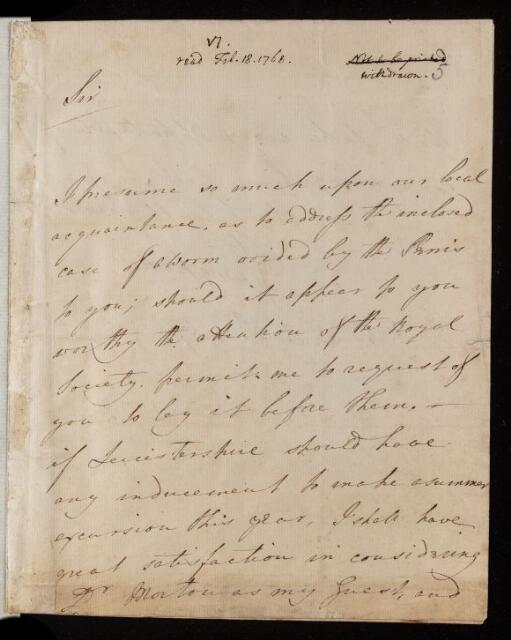 VI.
read Feb. 18. 1768.
Not to be printed
withdrawn. 5
Sir
I presume so much upon our local
acquaintance, as to address the inclosed
case of a Worm voided by the Penis
to you; should it appear to you
worthy the attention of the Royal
Society, permit me to request of
you to lay it before them. —
if Leicistershire should have
any inducement to make a summer
excursion this year, I shall have
great satisfaction in considering
Dr Morton as my Guest, and